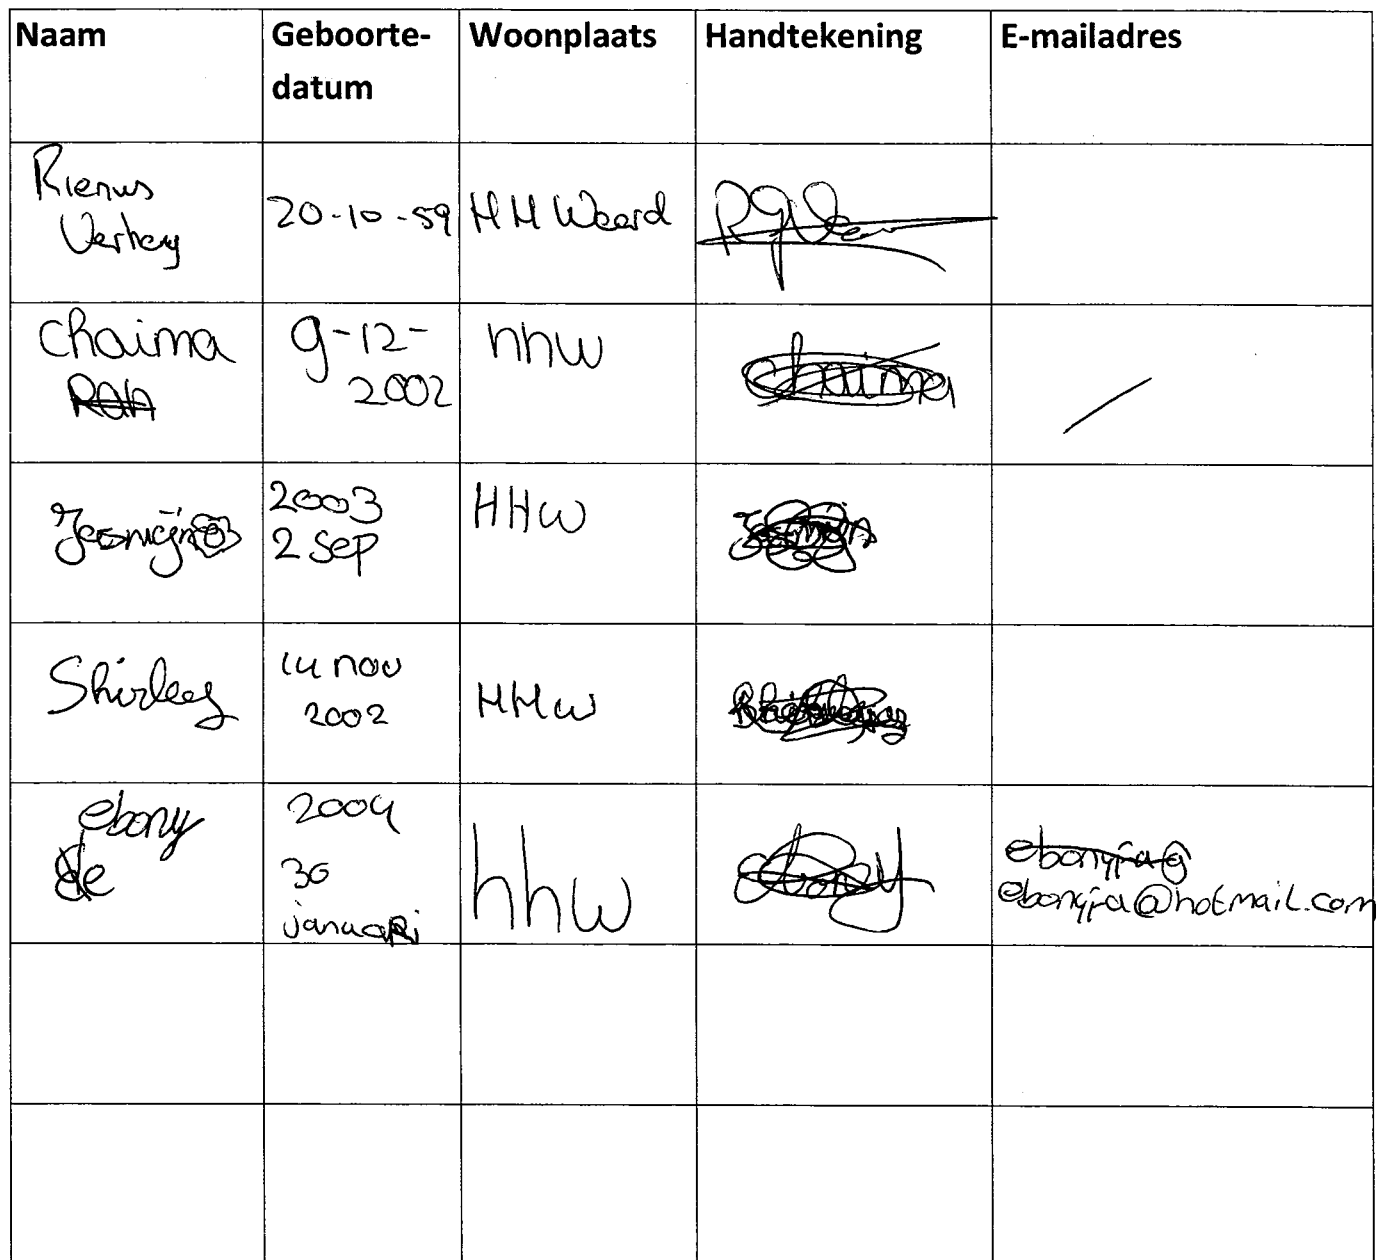 Naam
Geboorte-
datum
Woonplaats
Handtekening
E-mailadres
Rienus
Verhey
20-10-59
HHWaard
chaima
9-12-
2002
hhw
chaima
2003
2 sep
HHW
Shirley
14 nov
2002
HHW
ebony
de
2004
30
januari
hhw
ebony
ebonyja@
ebonyja@hotmail.com